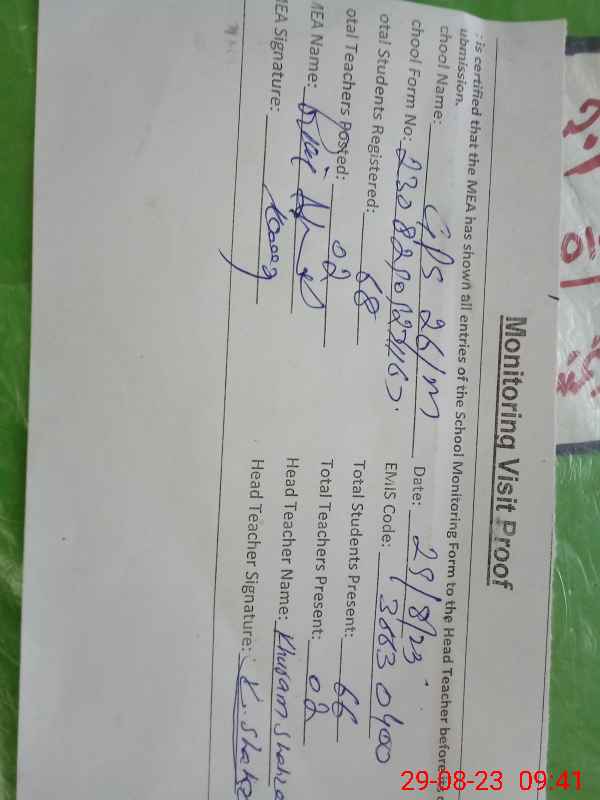 Monitoring Visit Proof
is certified that the MEA has shown all entries of the School Monitoring Form to the Head Teacher before
ubmission.
chool Name: GPS 26/M Date: 29/8/23
chool Form No: EMIS Code:
otal Students Registered: 68 Total Students Present: 66
otal Teachers Posted: 02 Total Teachers Present: 02
MEA Name: Head Teacher Name: Khuram
EA Signature: Head Teacher Signature: K. Shah
29-08-23 09:41